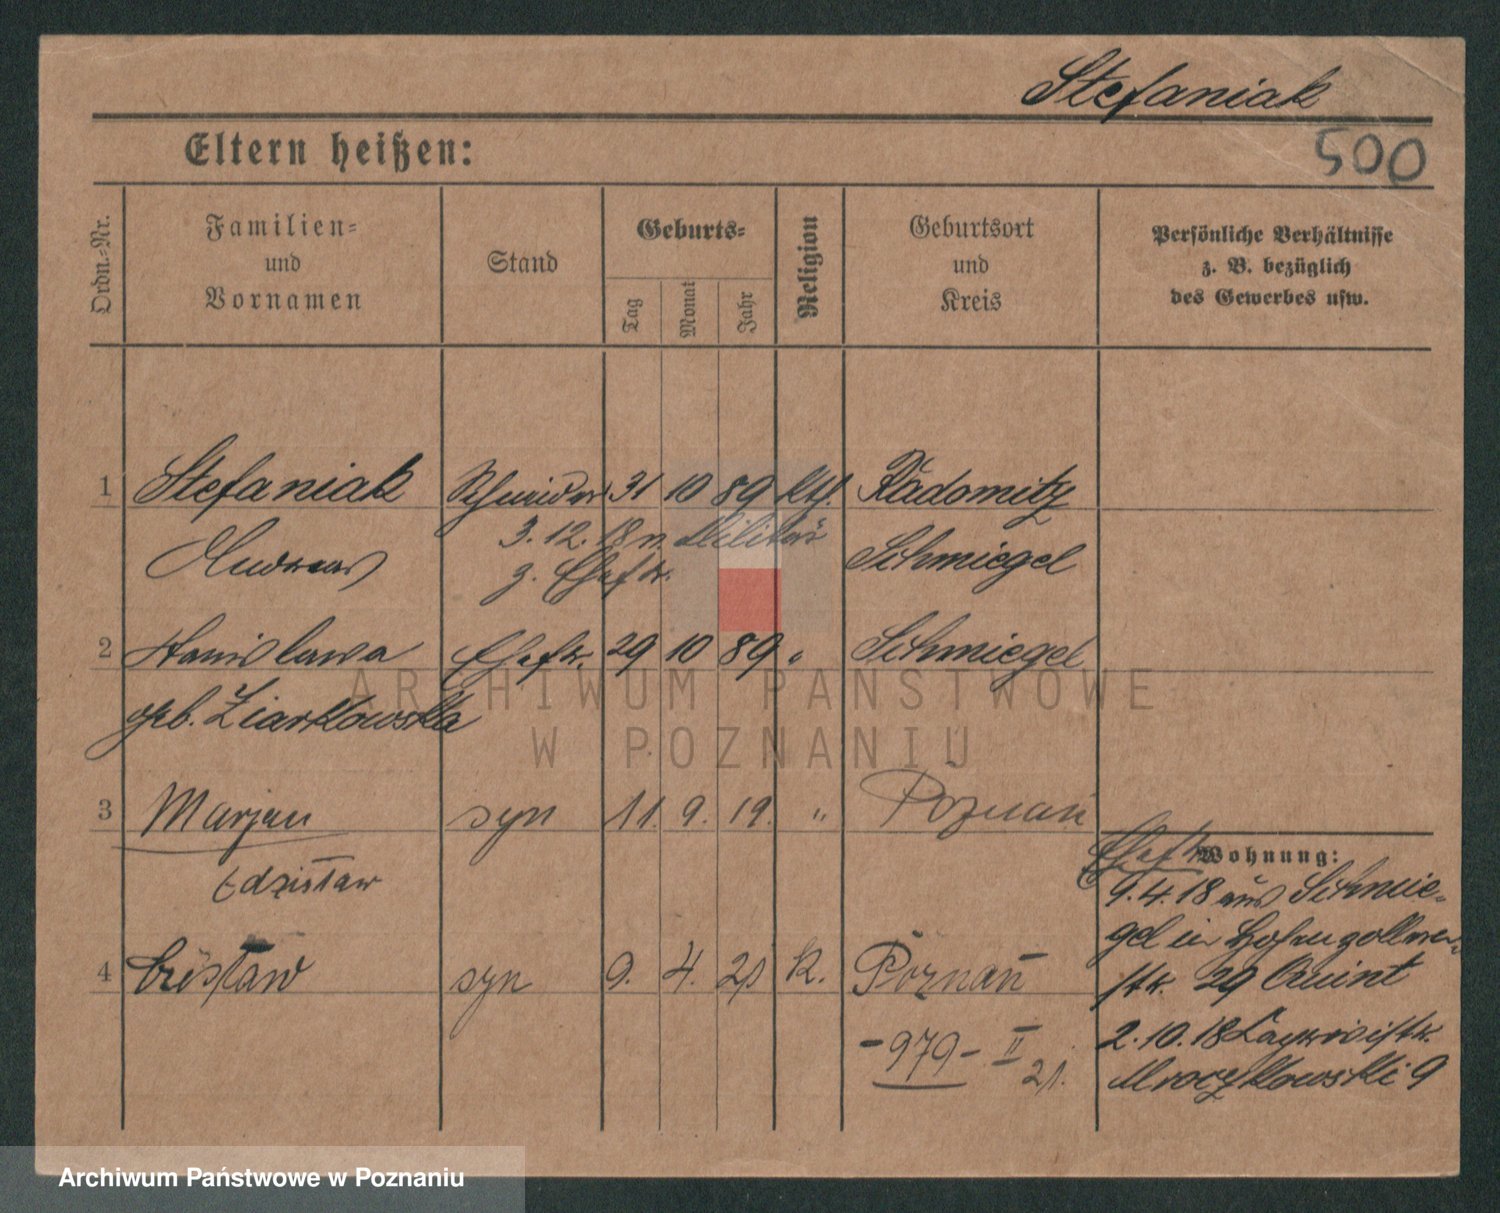 Stefaniak
500
Eltern heißen:
Ordn.-Nr.
Familien-
und
Vornamen
Stand
Geburts-
Tag
Monat
Jahr
Religion
Geburtsort
und
Kreis
Persönliche Verhältnisse
z. B. bezüglich
des Gewerbes usw.
1 Stefaniak Schneider 31 10 89 kth. Radomitz
3. 12. 18 n. Militär
Andreas z. Ehefr. Schmiegel
2 Stanislawa Ehefr. 29 10 89 " Schmiegel
geb. Ziarkowska
ARCHIWUM PAŃSTWOWE
W POZNANIU
3 Marjan syn 11. 9. 19. " Poznań
Zdzisław
4 syn 9. 4. 21 k. Poznań
-979- II
21.
Ehefr. Wohnung:
9.4.18 aus Schmie-
gel in Hohenzollern-
str. 29
2.10.18
Mroczkowski 9
Archiwum Państwowe w Poznaniu